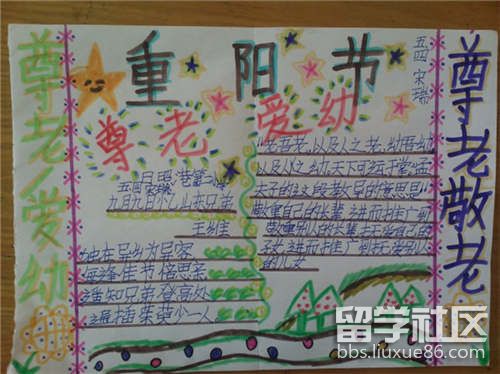 重阳节
五四 宋瑞
尊老爱幼
尊老
爱幼
尊老敬老
九月九日忆山东兄弟
王维
独在异乡为异客
每逢佳节倍思亲
遥知兄弟登高处
遍插茱萸少一人
"老吾老,以及人之老,幼吾幼
以及人之幼,天下可运于掌"孟
夫子的这段教导的意思是
敬重自己的长辈,进而推广到
敬重别人的长辈,关爱自己的
子女,进而推广到关爱别人
的儿女
留学社区
bbs.liuxue86.com